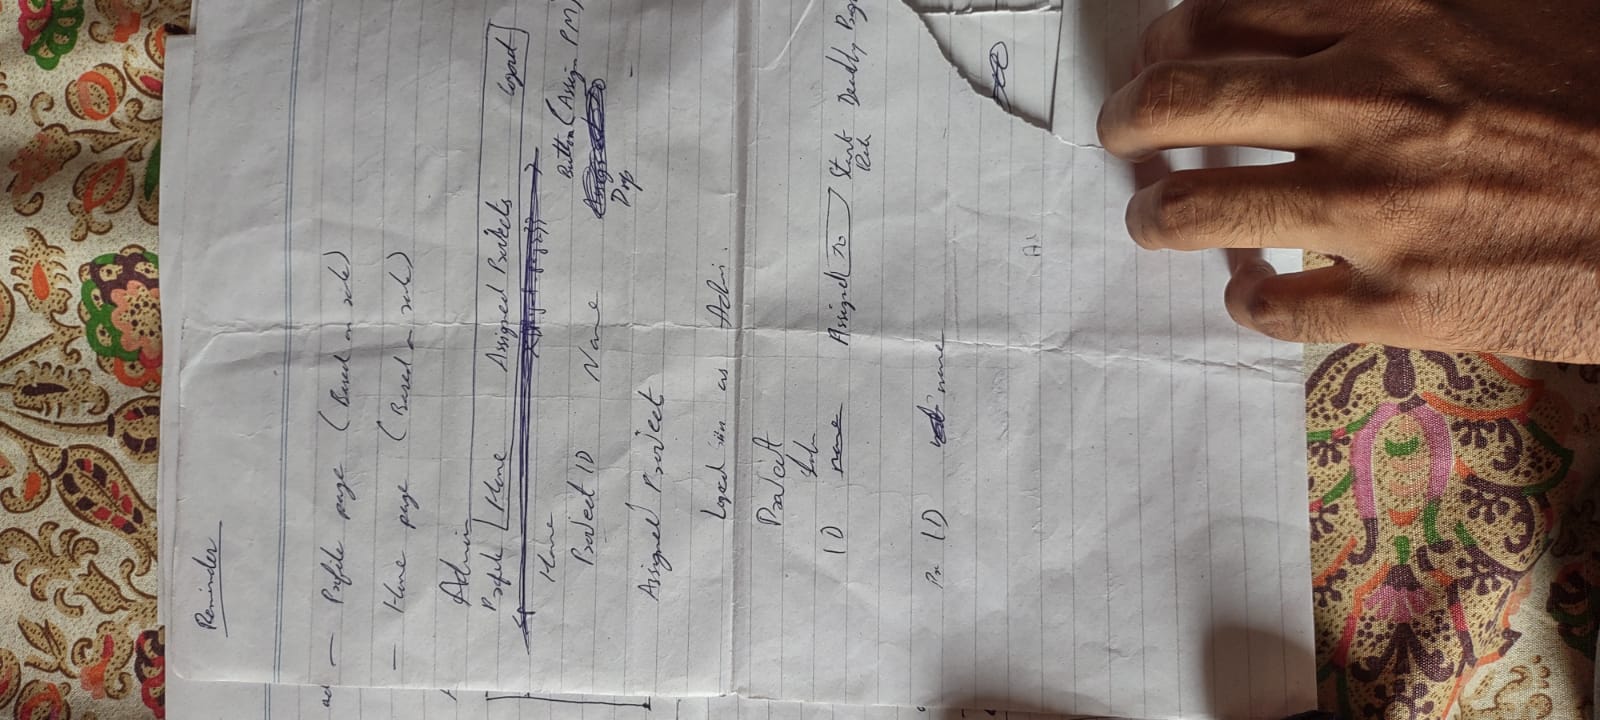 Reminder
— Profile page (Based on role)
— Home page (Based on role)
Admin
Profile Home Assigned Projects Logout
Home
Project ID Name Button (Assign PM)
Drop
Assigned Project
Loged in as Admi.
Project
ID name Assigned To Start Deadly
ID name